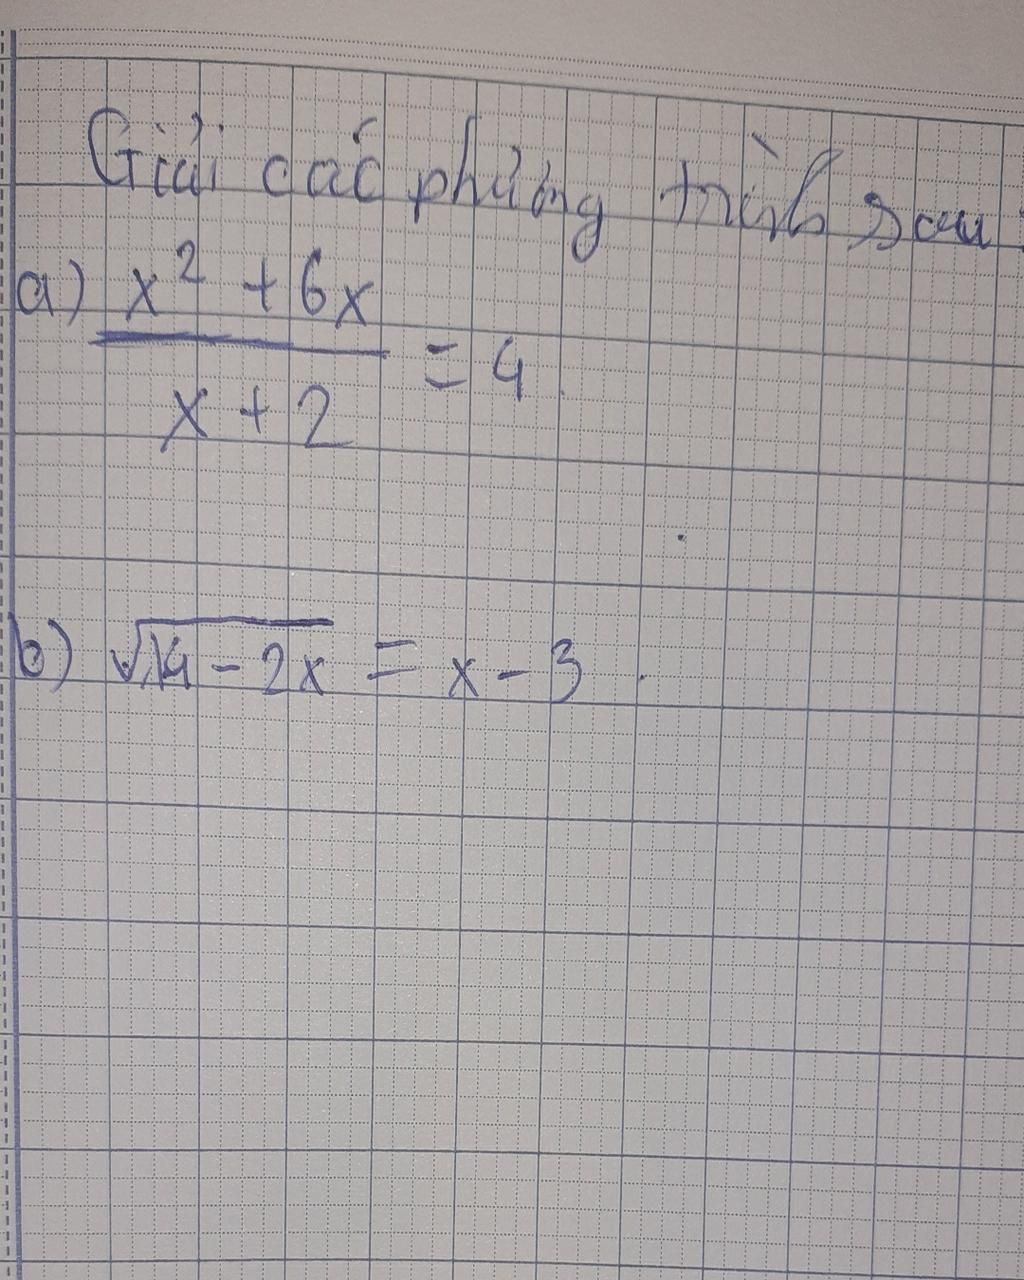 Giải các phương trình sau:
a) x² + 6x
x + 2
= 4
b) √14 - 2x = x - 3